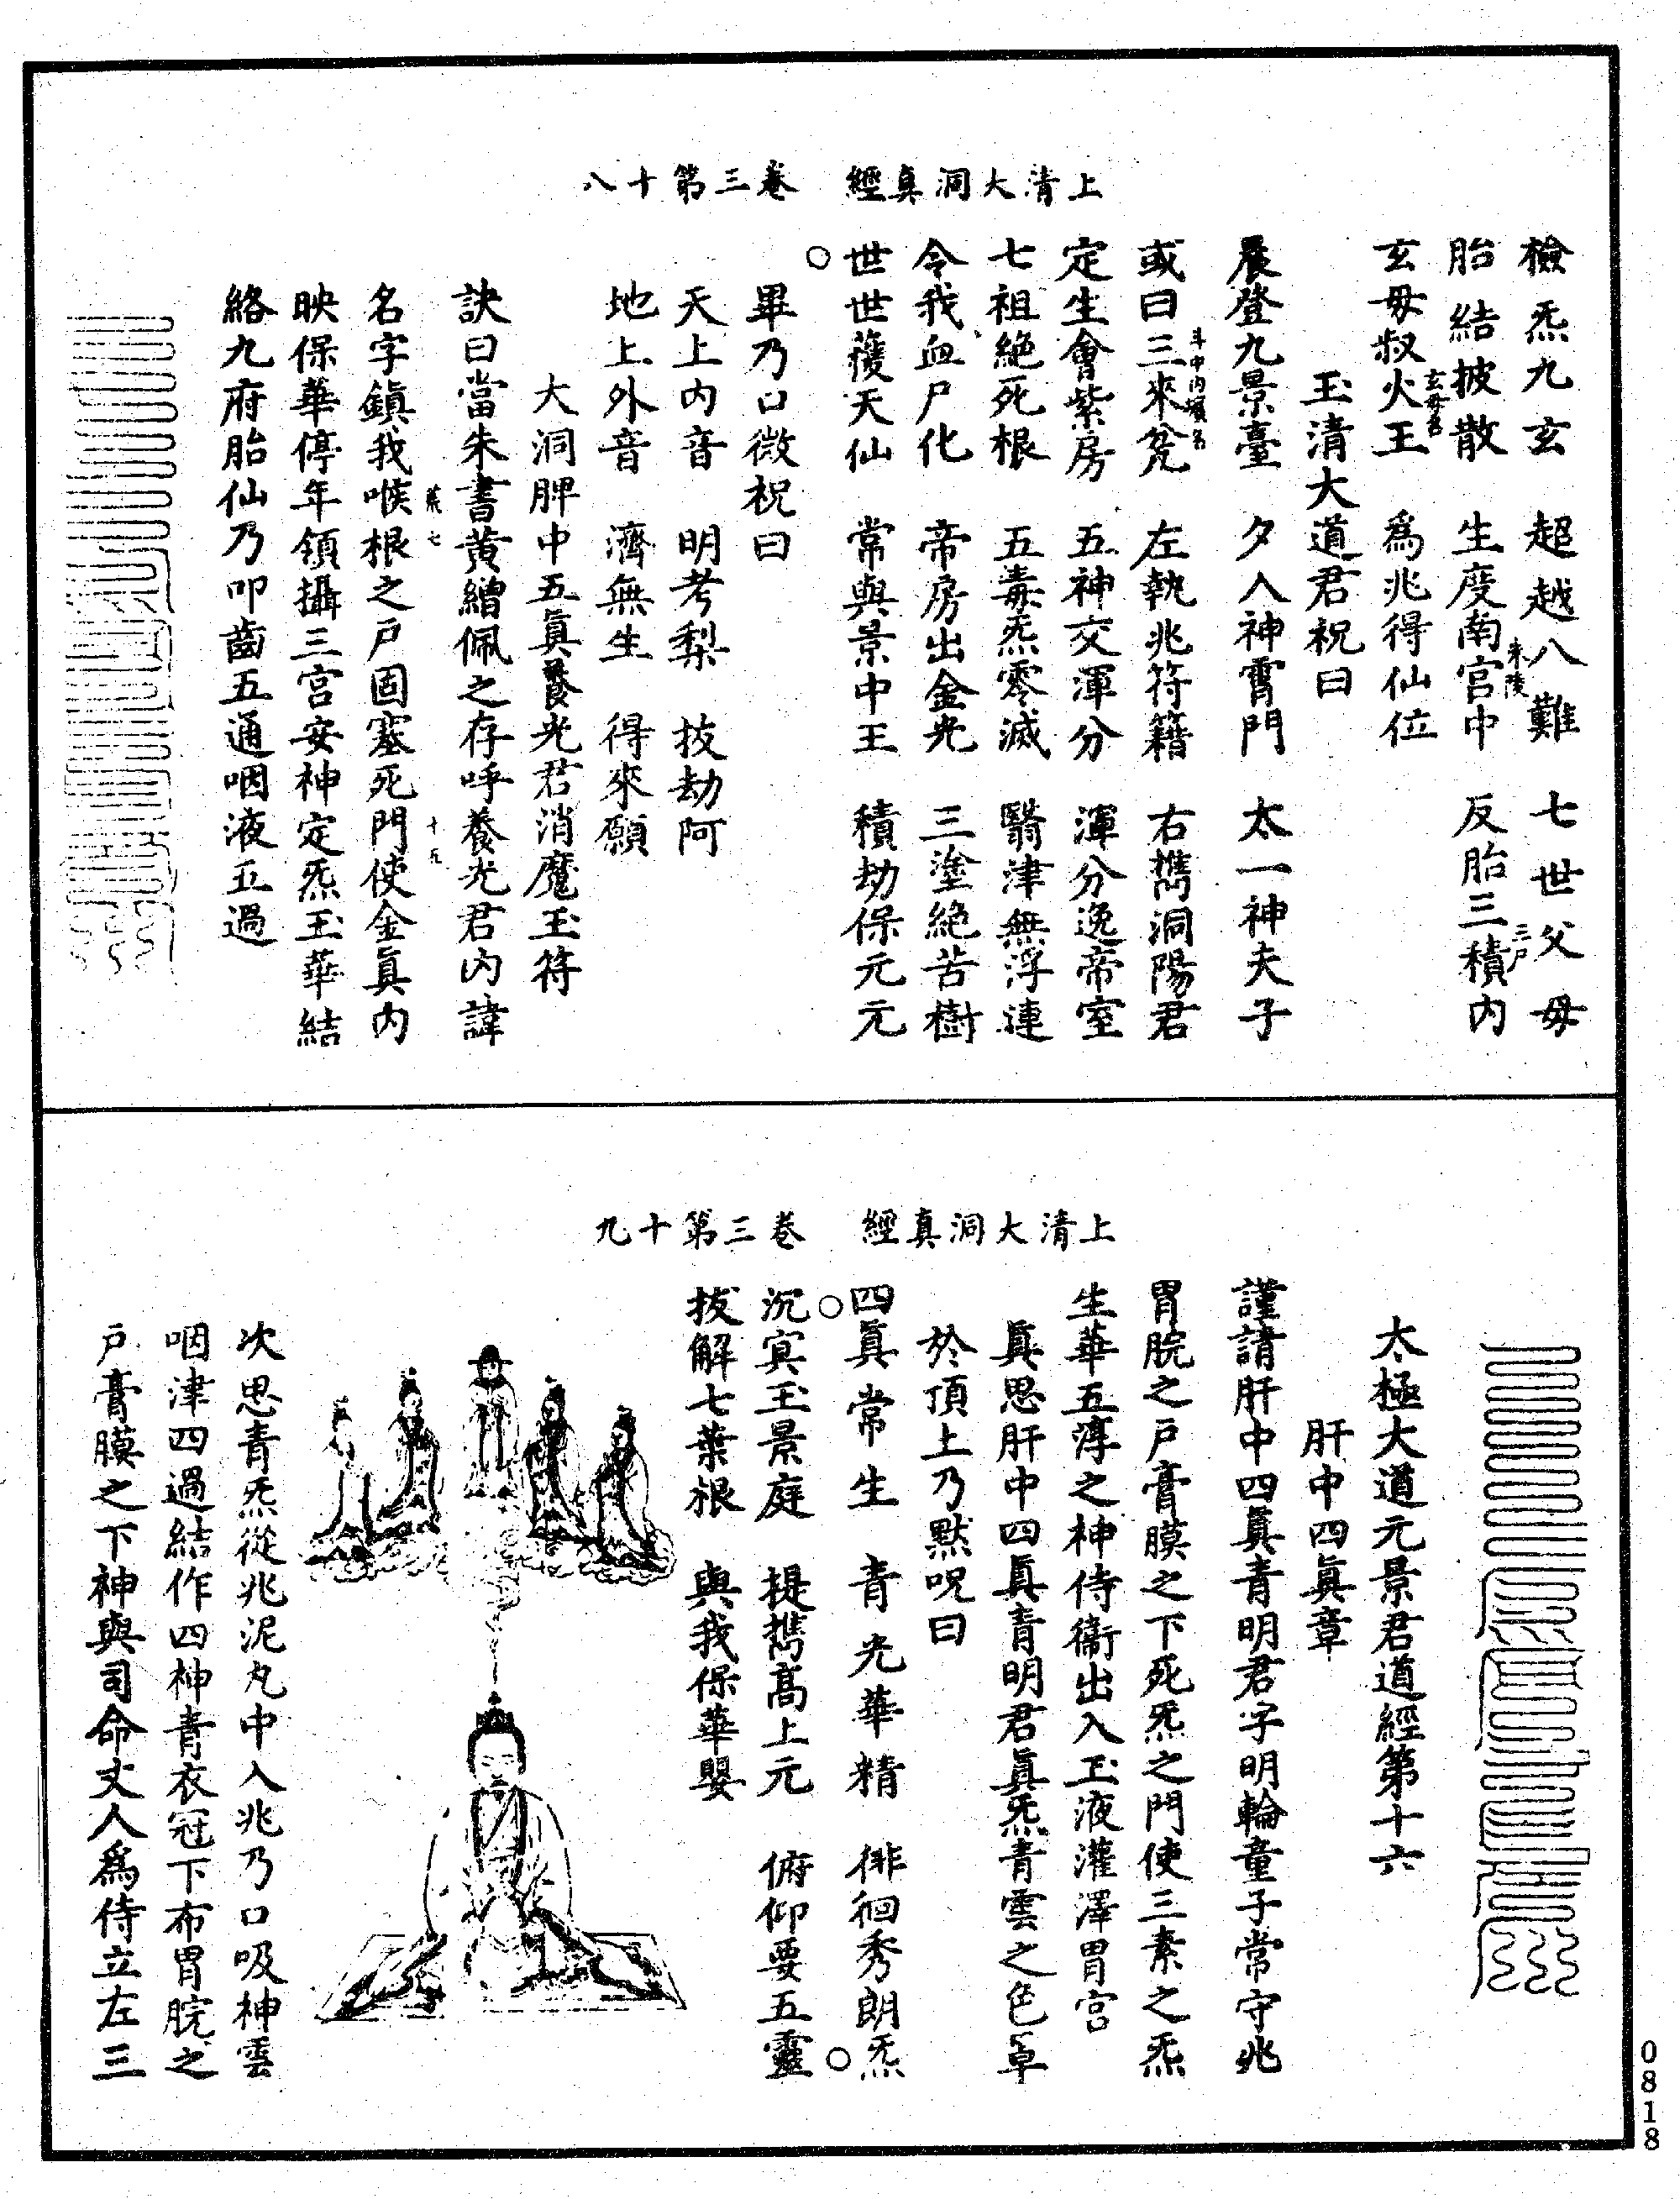 上清大洞真經 卷三第十八
檢炁九玄 超越八難 七世父母
胎結披散 生度南宮中 反胎三積內
朱陵
三尸
玄母叔火王 為兆得仙位
玄母名
玉清大道君祝曰
晨登九景臺 夕入神霄門 太一神夫子
或曰三來 左執兆符籍 右攜洞陽君
定生會紫房 五神交渾分 渾分逸帝室
七祖絕死根 五毒炁零滅 翳津無浮連
令我血尸化 帝房出金光 三塗絕苦樹
世世獲天仙 常與景中王 積劫保元元
○
畢乃口微祝曰
天上內音 明考梨 技劫阿
地上外音 濟無生 得來願
大洞脾中五真養光君消魔玉符
訣曰當朱書黃繒佩之存呼養光君內諱
名字鎮我喉根之戶固塞死門使金真內
映保華停年領攝三宮安神定炁玉華結
絡九府胎仙乃叩齒五通咽液五過
上清大洞真經 卷三第十九
太極大道元景君道經第十六
肝中四真章
謹請肝中四真青明君字明輪童子常守兆
胃脘之戶膏膜之下死炁之門使三素之炁
生華五淳之神侍衞出入玉液灌澤胃宮
真思肝中四真青明君真炁青雲之色罩
於頂上乃默呪曰
四真常生 青光華精 徘徊秀朗炁
○
○
沉寘玉景庭 提攜高上元 俯仰要五靈
拔解七葉根 與我保華嬰
次思青炁從兆泥丸中入兆乃口吸神雲
咽津四過結作四神青衣冠下布胃脘之
戶膏膜之下神與司命丈人為侍立左三
0818